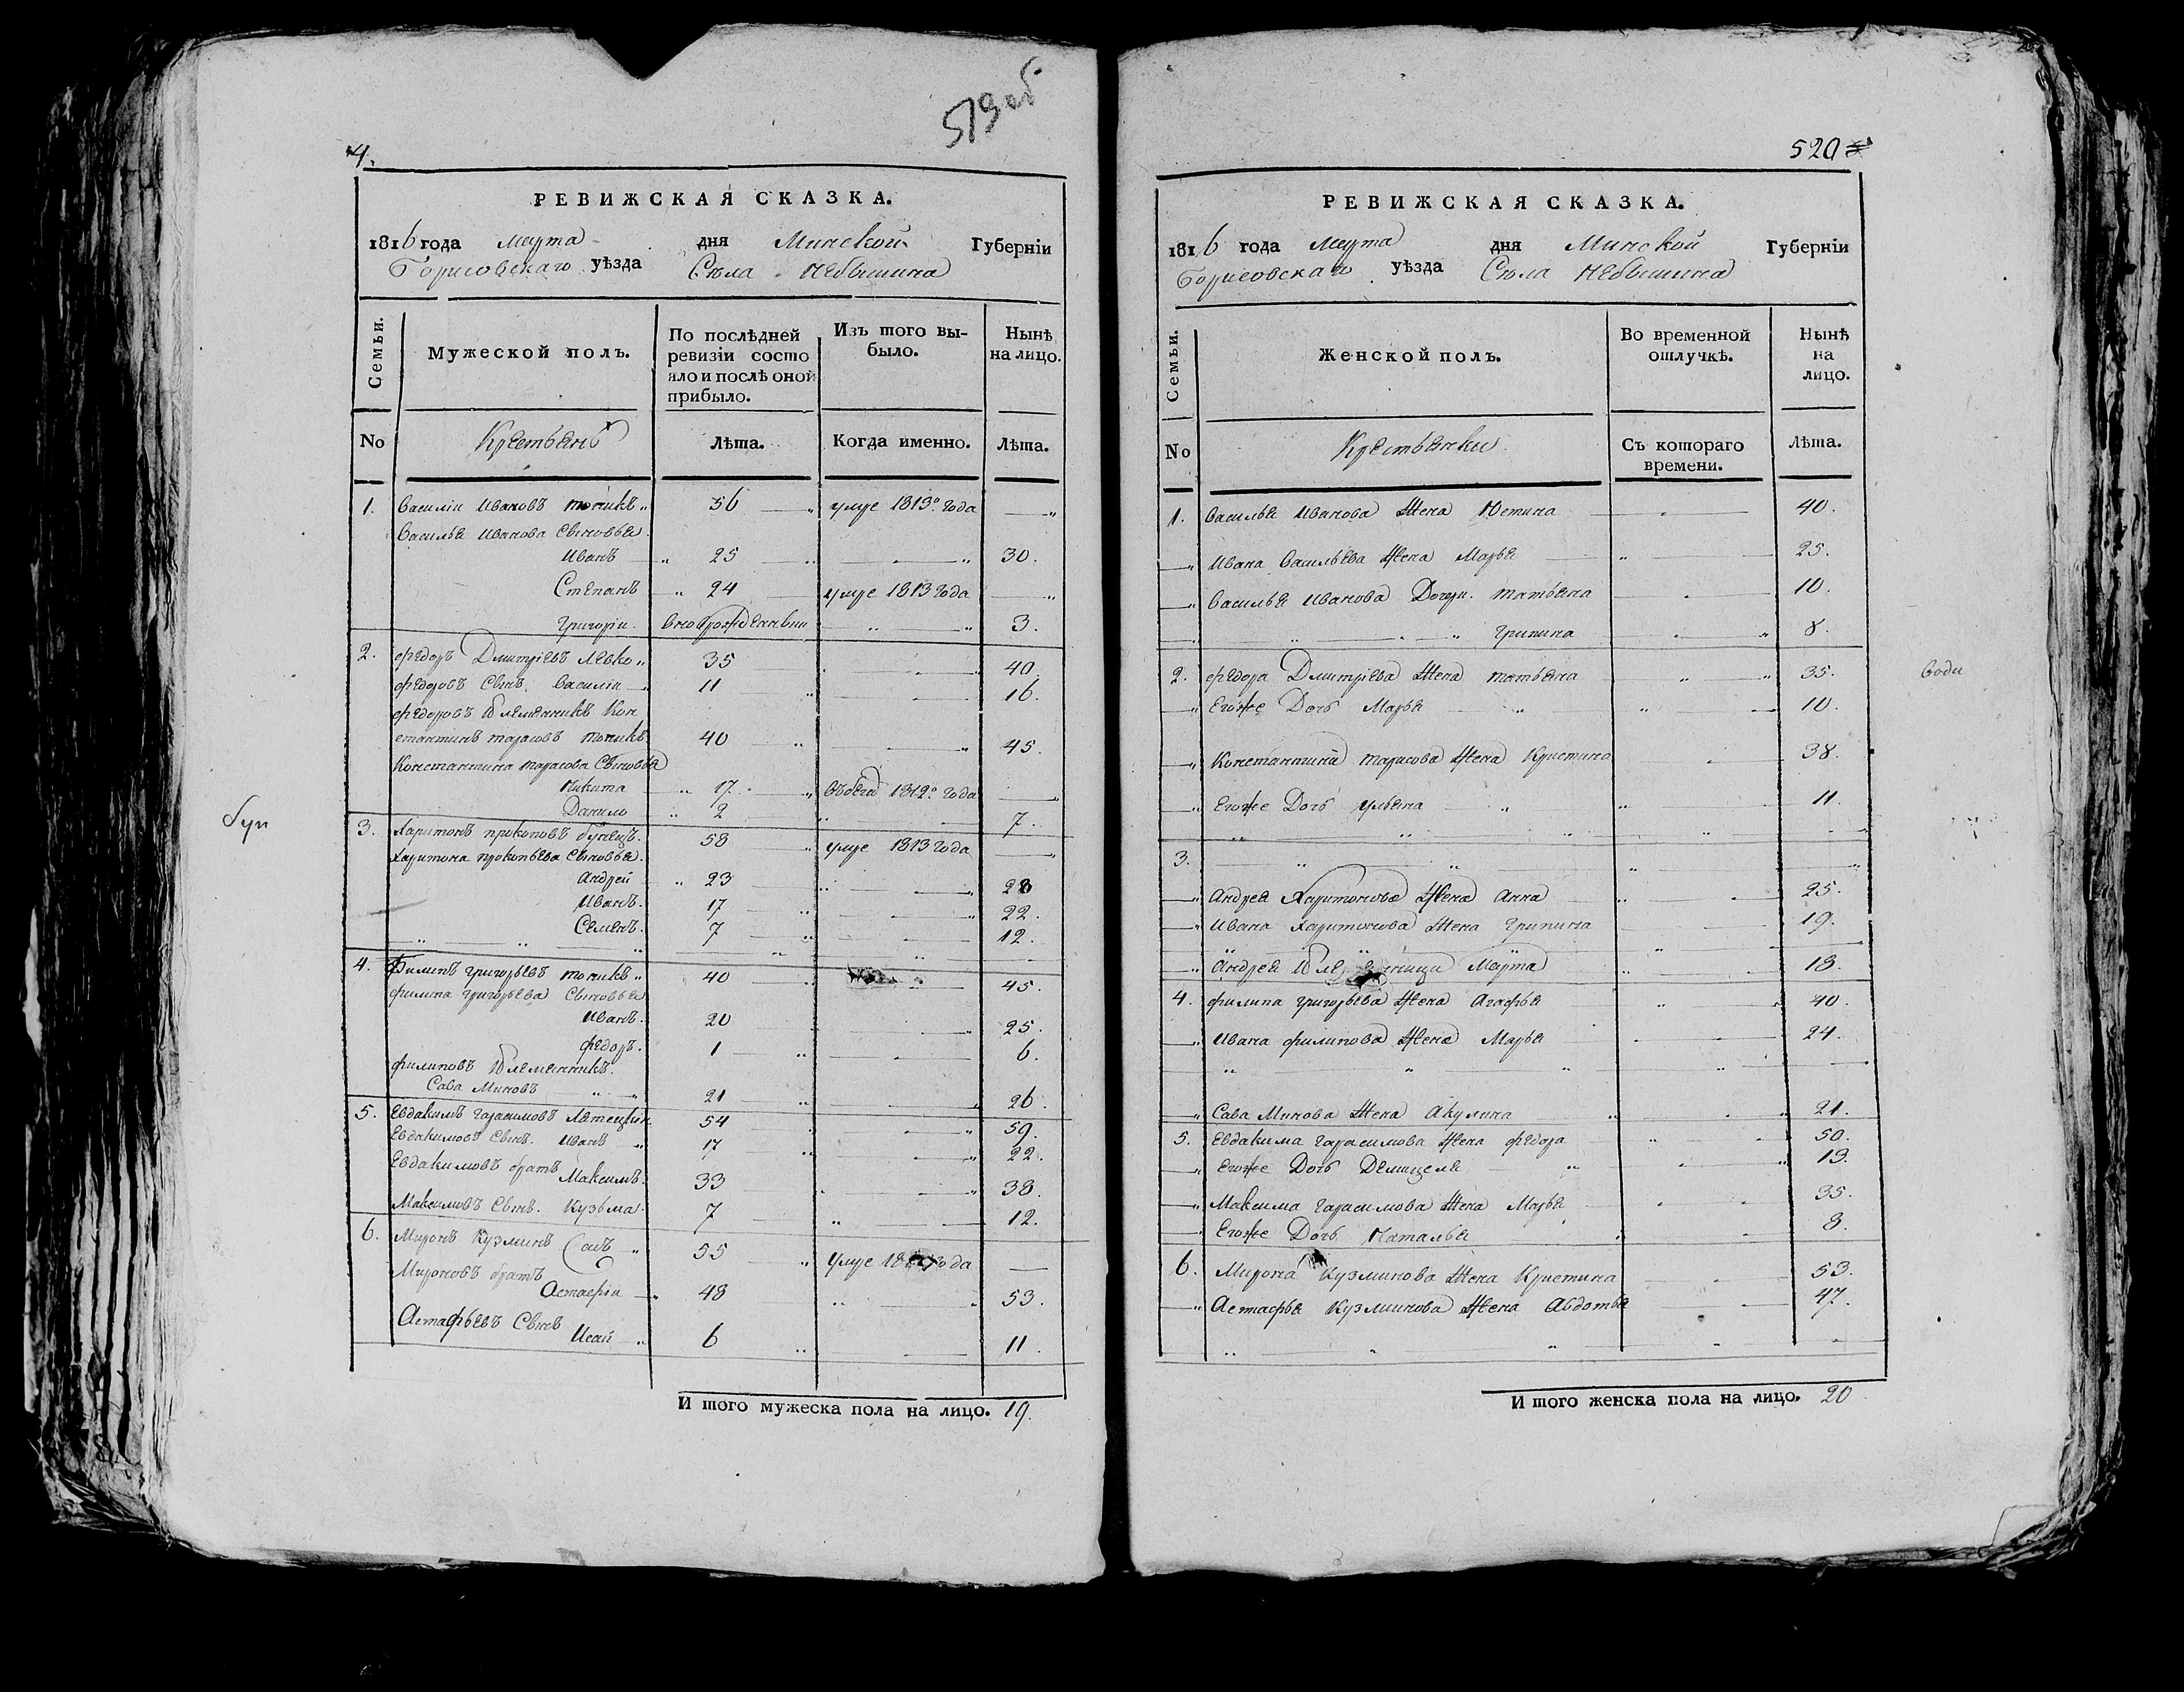 4.
519 об
РЕВИЖСКАЯ СКАЗКА.
1816 года Марта дня Минской Губерніи
Борисовскаго уѣзда Села Небышина
Семьи.
Мужеской полъ.
По послѣдней ревизіи состояло и послѣ оной прибыло.
Изъ того выбыло.
Нынѣ на лицо.
No
Крестьянѣ
Лѣта.
Когда именно.
Лѣта.
1. Василіи Ивановъ 56 умре 1813го года
Василья Иванова Сыновья
Иванъ 25 30.
Степанъ 24 умре 1813 года
Григоріи вновьрожденныи 3.
2. Федоръ Дмитріевъ Левко 35 40.
Федоровъ Сынъ Василіи 11 16.
Федоровъ Племенникъ Кон
стантинъ Тарасовъ 40 45.
Константина Тарасова Сыновья
Никита 17 1812го года
Данило 2 7.
3. Харитонъ Прокоповъ 58 умре 1813 года
Харитона Прокопьева Сыновья
Андрей 23 28
Иванъ 17 22.
Семенъ 7 12.
4. Филипъ Григорьевъ 40 45.
Филипа Григорьева Сыновья
Иванъ 20 25.
Федоръ 1 6.
Филиповъ Племянникъ
Сава Миновъ 21 26.
5. Евдакимъ Гарасимовъ 54 59.
Евдакимовъ Сынъ Иванъ 17 22.
Евдакимовъ братъ Максимъ 33 38.
Максимовъ Сынъ Кузьма 7 12.
6. Миронъ Кузминъ 55 умре года
Мироновъ братъ
Астафіи 48 53.
Астафьевъ Сынъ
Исай 6 11.
И того мужеска пола на лицо. 19.
Бун
520
РЕВИЖСКАЯ СКАЗКА.
1816 года Марта дня Минской Губерніи
Борисовскаго уѣзда Села Небышина
Семьи.
Женской полъ.
Во временной отлучкѣ.
Нынѣ на лицо.
No
Крестьянки
Съ котораго времени.
Лѣта.
1. Василья Иванова Жена Юстина 40.
Ивана Васильева Жена Марья 25.
Василья Иванова Дочери Татьяна 10.
Грипина 8.
2. Федора Дмитріева Жена Татьяна 35.
Егоже Дочь Марья 10.
Константина Тарасова Жена Кристина 38.
Егоже Дочь Ульяна 11.
3.
Андрея Харитонова Жена Анна 25.
Ивана Харитонова Жена Грипина 19.
Андрея Марта 18.
4. Филипа Григорьева Жена Агафья 40.
Ивана Филипова Жена Марья 24.
Сава Минова Жена Акулина 21.
5. Евдакима Гарасимова Жена Федора 50.
Егоже Дочь 13.
Максима Гарасимова Жена Марья 35.
Егоже Дочь Наталья 8.
6. Мирона Кузминова Жена Кристина 53.
Астафья Кузминова Жена Авдотья 47.
И того женска пола на лицо. 20